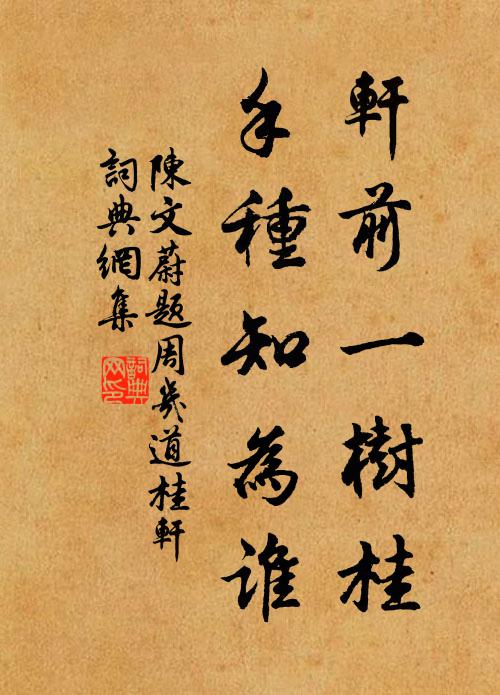 軒前一樹桂
手種知為誰
陳文蔚題周幾道桂軒
詞典網集
詞典网印